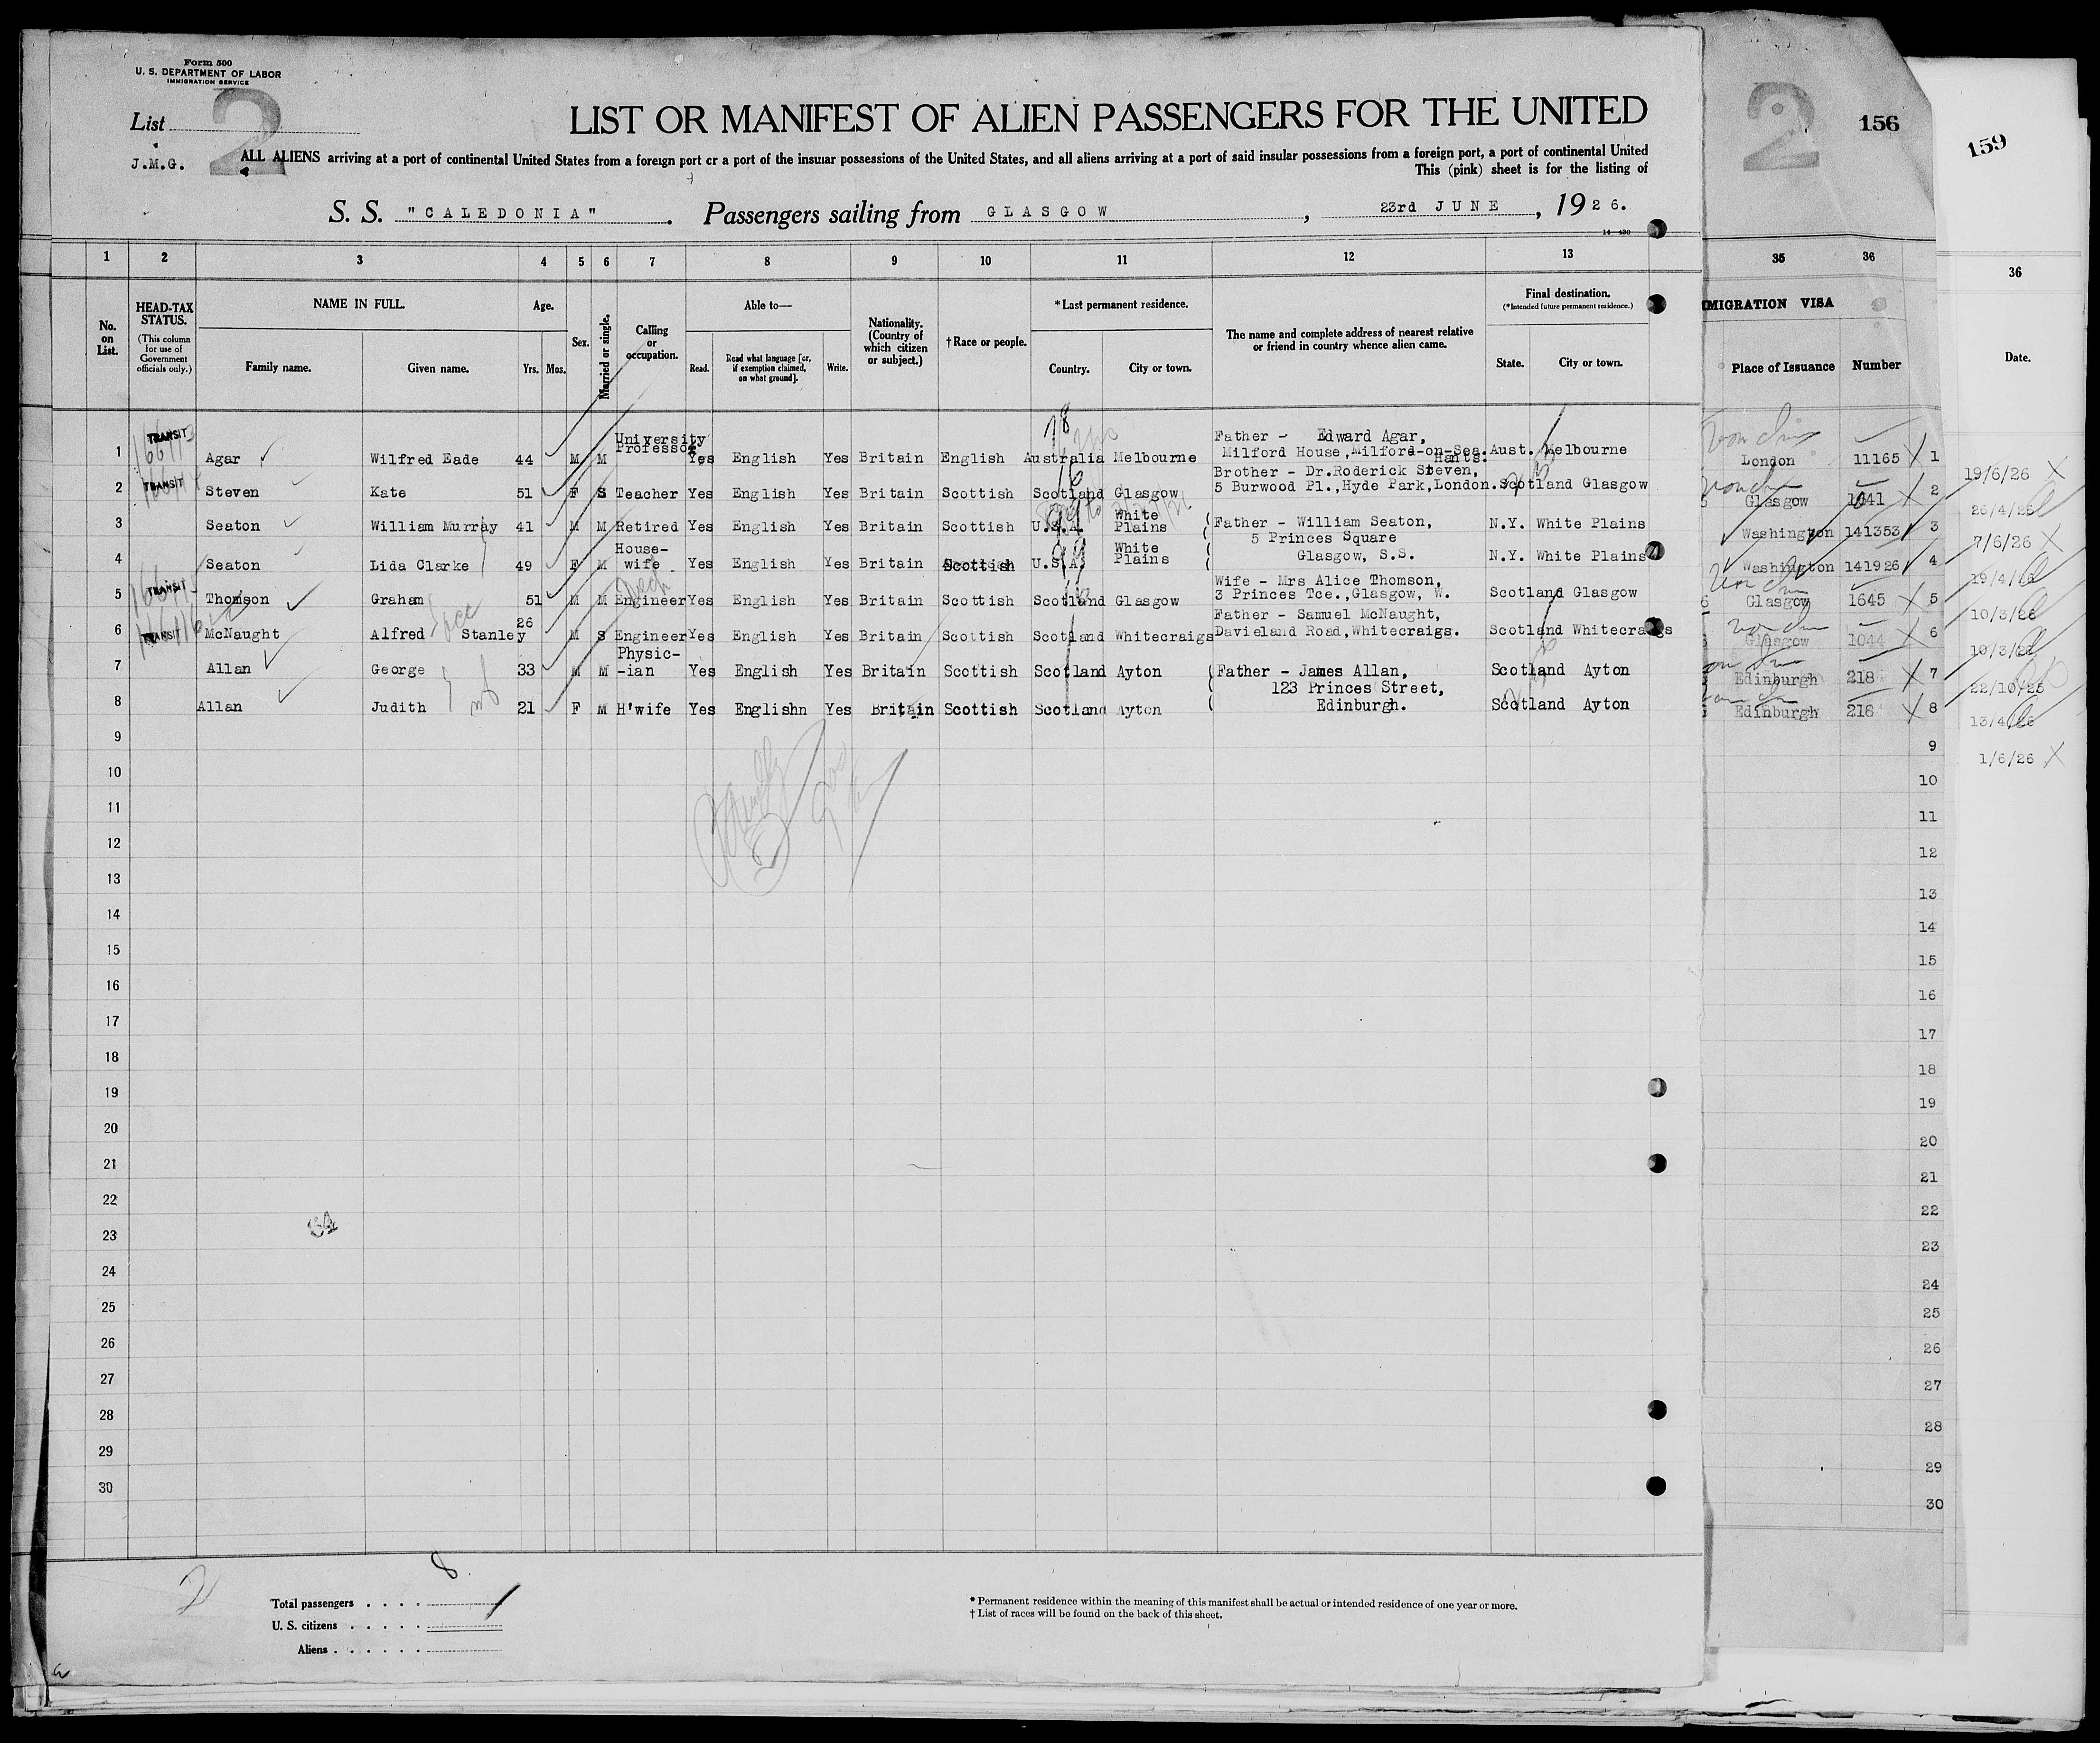 Form 500
U. S. DEPARTMENT OF LABOR
IMMIGRATION SERVICE
2
List
J.M.G.
LIST OR MANIFEST OF ALIEN PASSENGERS FOR THE UNITED
ALL ALIENS arriving at a port of continental United States from a foreign port or a port of the insular possessions of the United States, and all aliens arriving at a port of said insular possessions from a foreign port, a port of continental United
This (pink) sheet is for the listing of
S. S. "CALEDONIA". Passengers sailing from GLASGOW, 23rd JUNE, 1926.
2 156
159
1 2 3 4 5 6 7 8 9 10 11 12 13 35 36
36
No. on List.
HEAD-TAX STATUS.
(This column for use of Government officials only.)
NAME IN FULL.
Family name. Given name.
Age.
Yrs. Mos.
Sex.
Married or single.
Calling or occupation.
Able to—
Read. Read what language [or, if exemption claimed, on what ground]. Write.
Nationality. (Country of which citizen or subject.)
† Race or people.
* Last permanent residence.
Country. City or town.
The name and complete address of nearest relative or friend in country whence alien came.
Final destination.
(* Intended future permanent residence.)
State. City or town.
MIGRATION VISA
Place of Issuance Number
Date.
1 TRANSIT Agar Wilfred Eade 44 M M University Professor Yes English Yes Britain English Australia Melbourne Father - Edward Agar, Milford House, Milford-on-Sea. Hants. Aust. Melbourne London 11165 1
2 TRANSIT Steven Kate 51 F S Teacher Yes English Yes Britain Scottish Scotland Glasgow Brother - Dr. Roderick Steven, 5 Burwood Pl., Hyde Park, London. Scotland Glasgow Glasgow 1641 2
3 Seaton William Murray 41 M M Retired Yes English Yes Britain Scottish U.S.A. White Plains Father - William Seaton, 5 Princes Square N.Y. White Plains Washington 141353 3
4 Seaton Lida Clarke 49 F M House-wife Yes English Yes Britain Scottish U.S.A. White Plains Glasgow, S.S. N.Y. White Plains Washington 141926 4
5 TRANSIT Thomson Graham 51 M M Engineer Yes English Yes Britain Scottish Scotland Glasgow Wife - Mrs Alice Thomson, 3 Princes Tce., Glasgow, W. Scotland Glasgow Glasgow 1645 5
6 TRANSIT McNaught Alfred Stanley 26 M S Engineer Yes English Yes Britain Scottish Scotland Whitecraigs Father - Samuel McNaught, Davieland Road, Whitecraigs. Scotland Whitecraigs Glasgow 1044 6
7 Allan George 33 M M Physic--ian Yes English Yes Britain Scottish Scotland Ayton Father - James Allan, 123 Princes Street, Scotland Ayton Edinburgh 218 7
8 Allan Judith 21 F M H'wife Yes Englishn Yes Britain Scottish Scotland Ayton Edinburgh. Scotland Ayton Edinburgh 216 8
19/6/26
26/4/26
7/6/26
19/4/26
10/3/26
10/3/26
22/10/25
13/4/26
1/6/26
9 9
10 10
11 11
12 12
13 13
14 14
15 15
16 16
17 17
18 18
19 19
20 20
21 21
22 22
23 23
24 24
25 25
26 26
27 27
28 28
29 29
30 30
2
8
Total passengers
U. S. citizens
Aliens
* Permanent residence within the meaning of this manifest shall be actual or intended residence of one year or more.
† List of races will be found on the back of this sheet.